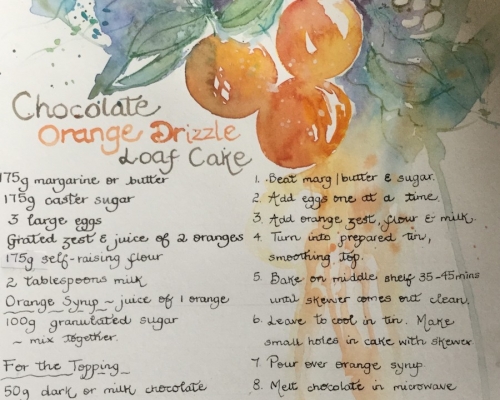 Chocolate
Orange Drizzle
Loaf Cake
175g margarine or butter
175g caster sugar
3 large eggs
Grated zest & juice of 2 oranges
175g self-raising flour
2 tablespoons milk
Orange Syrup ~ juice of 1 orange
100g granulated sugar
~ mix together.
For the Topping ~
50g dark or milk chocolate
1. Beat marg/butter & sugar.
2. Add eggs one at a time.
3. Add orange zest, flour & milk.
4. Turn into prepared tin,
smoothing top.
5. Bake on middle shelf 35-45mins
until skewer comes out clean.
6. Leave to cool in tin. Make
small holes in cake with skewer
7. Pour over orange syrup.
8. Melt chocolate in microwave